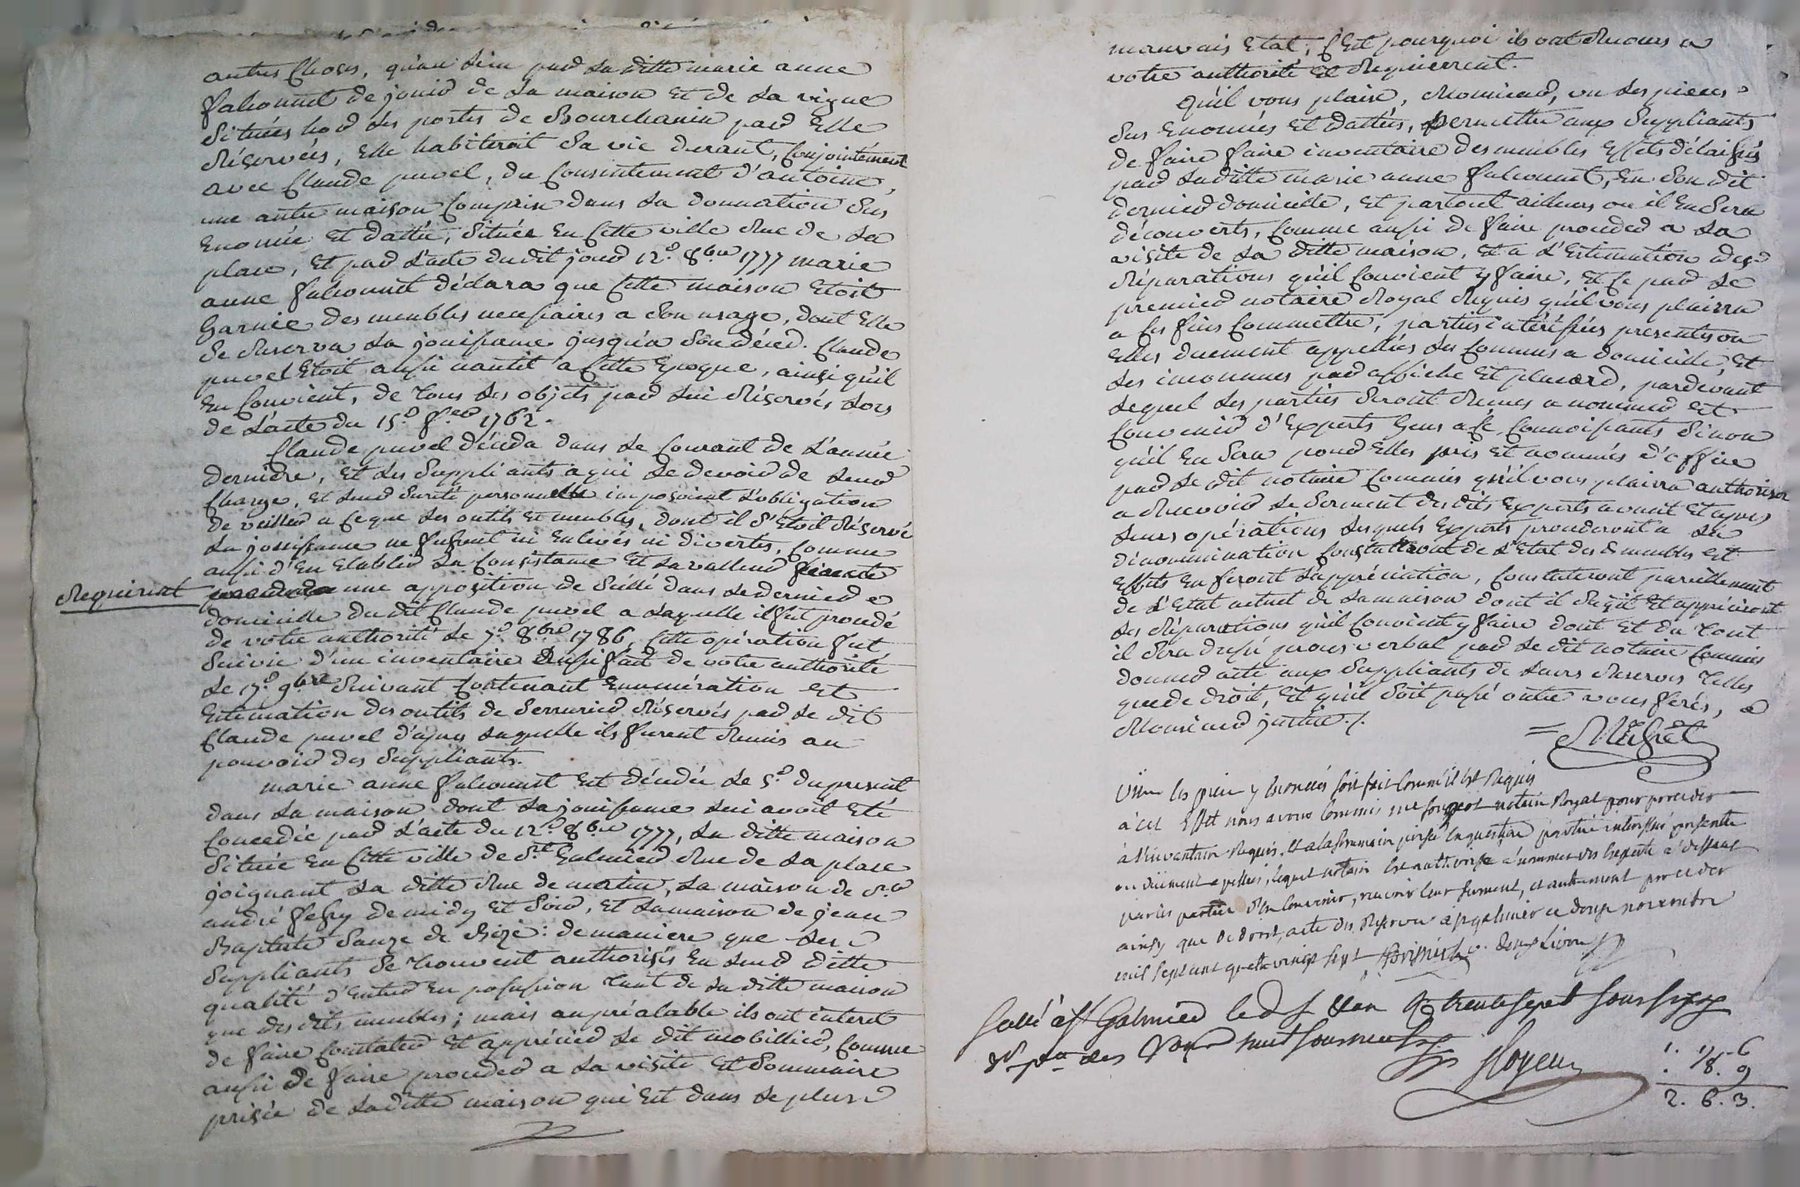 autres choses, qu'au lieu par laditte marie anne
faleonnet de jouir de la maison et de la vigne
situées hors des portes de Bourchanin par elle
réservées, elle habiterait sa vie durant, conjointement
avec Claude puvel, du consentement d'antoine,
une autre maison comprise dans la donnation sus
enoncée et dattée, située en cette ville rue de la
place, et par l'acte dudit jour 12.e 8bre 1777 marie
anne faleonnet déclara que cette maison etoit
garnie des meubles necessaires a son usage, dont elle
se reserva la jouissance jusqu'a son décéd. Claude
puvel etoit aussi nantit a cette epoque, ainsi qu'il
en convient, de tous les objets par lui réservés lors
de l'acte du 15.e 1762.
Claude puvel décéda dans le courant de l'année
derniere, et les suppliants a qui le devoir de leur
charge, et leur sureté personnelle imposoient l'obligation
de veiller a ce que les outils et meubles, dont il s'etoit réservé
la jouissance ne fussent ni enlevés ni divertis, comme
aussi d'en etablir la consistance et la valleur
Requirent
une apposition de scellé dans le dernier
domicille dudit Claude puvel a laquelle il fut procedé
de votre authorité le 7.e 8bre 1786. cette opération fut
suivie d'un inventaire aussi fait de votre authorité
le 17.e 9bre suivant contenant enumération et
estimation des outils de serrurier réservés par le dit
Claude puvel d'apres laquelle ils furent remis au
pouvoir des suppliants.
marie anne faleonnet est décédée le 5.e du present
dans la maison dont la jouissance lui avoit eté
concedée par l'acte du 12.e 8bre 1777, la ditte maison
située en cette ville de St Galmier rue de la place
joignant la ditte rue de matin, la maison de sr
andré de midy et soir, et la maison de jean
Baptiste de bize: de maniere que les
suppliants se trouvent authorisés en leur ditte
qualité d'entrer en possession tant de la ditte maison
que des dits meubles; mais au préalable ils ont interet
de faire constater et apprécier le dit mobillier, comme
aussi de faire proceder a la visite et sommaire
prisée de laditte maison qui est dans le plus
mauvais etat, c'est pourquoi ils ont recours a
votre authorité et requierrent.
Qu'il vous plaise, Monsieur, vu les pieces
sus enoncées et dattées, permettre aux suppliants
de faire faire inventaire des meubles effets délaissés
par laditte marie anne faleonnet, en son dit
dernier domicille, et partout ailleurs ou il en sera
découverts, comme aussi de faire proceder a la
visite de la ditte maison, et a l'estimation des
réparations qu'il convient y faire, et ce par le
premier notaire Royal requis qu'il vous plaira
a ces fins commettre, parties intéréssées presentes ou
elles duement appellées les connues a domicille, et
les inconnues par affiche et placard, pardevant
lequel les parties seront tenues a nommer et
convenir d'experts gens a ce connoissants sinon
qu'il en sera pour elles pris et nommés d'office
par le dit notaire commis qu'il vous plaira authoriser
a recevoir le serment desdits experts avant et apres
leurs opérations lesquels experts procederont a la
dénommination constateront de l'etat des meubles et
effets en feront l'appréciation, constateront pareillement
de l'etat actuel de la maison dont il s'agit et apprécieront
les réparations qu'il convient y faire dont et du tout
il sera dressé procès verbal par le dit notaire commis
donner acte aux suppliants de leurs reserves telles
que de droit, et qu'il soit passé outre vous ferés,
Monsieur justice./.
vu les pieces y enoncées soit fait comme il est requis
à cet effet nous avons commis me notaire Royal pour proceder
à l'inventaire requis, et a la sommaire prisée en question parties interessées presentes
ou duement appellées, lequel notaire est authorisé à nommer des experts a deffaut
par les parties d'en convenir, recevoir leur serment, et autrement proceder
ainsy que de droit, acte des reserves à st galmier ce douze novembre
mil sept cent quatre vingt sept
Scellé a St Galmier led. trente sept sous six
huit sous neuf
1. 18. 6
8. 9
2. 6. 3.